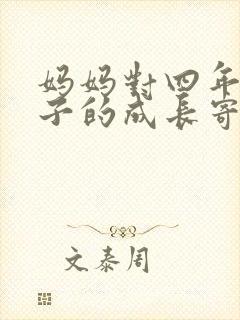 妈妈對四年
子的成長寄
文泰周